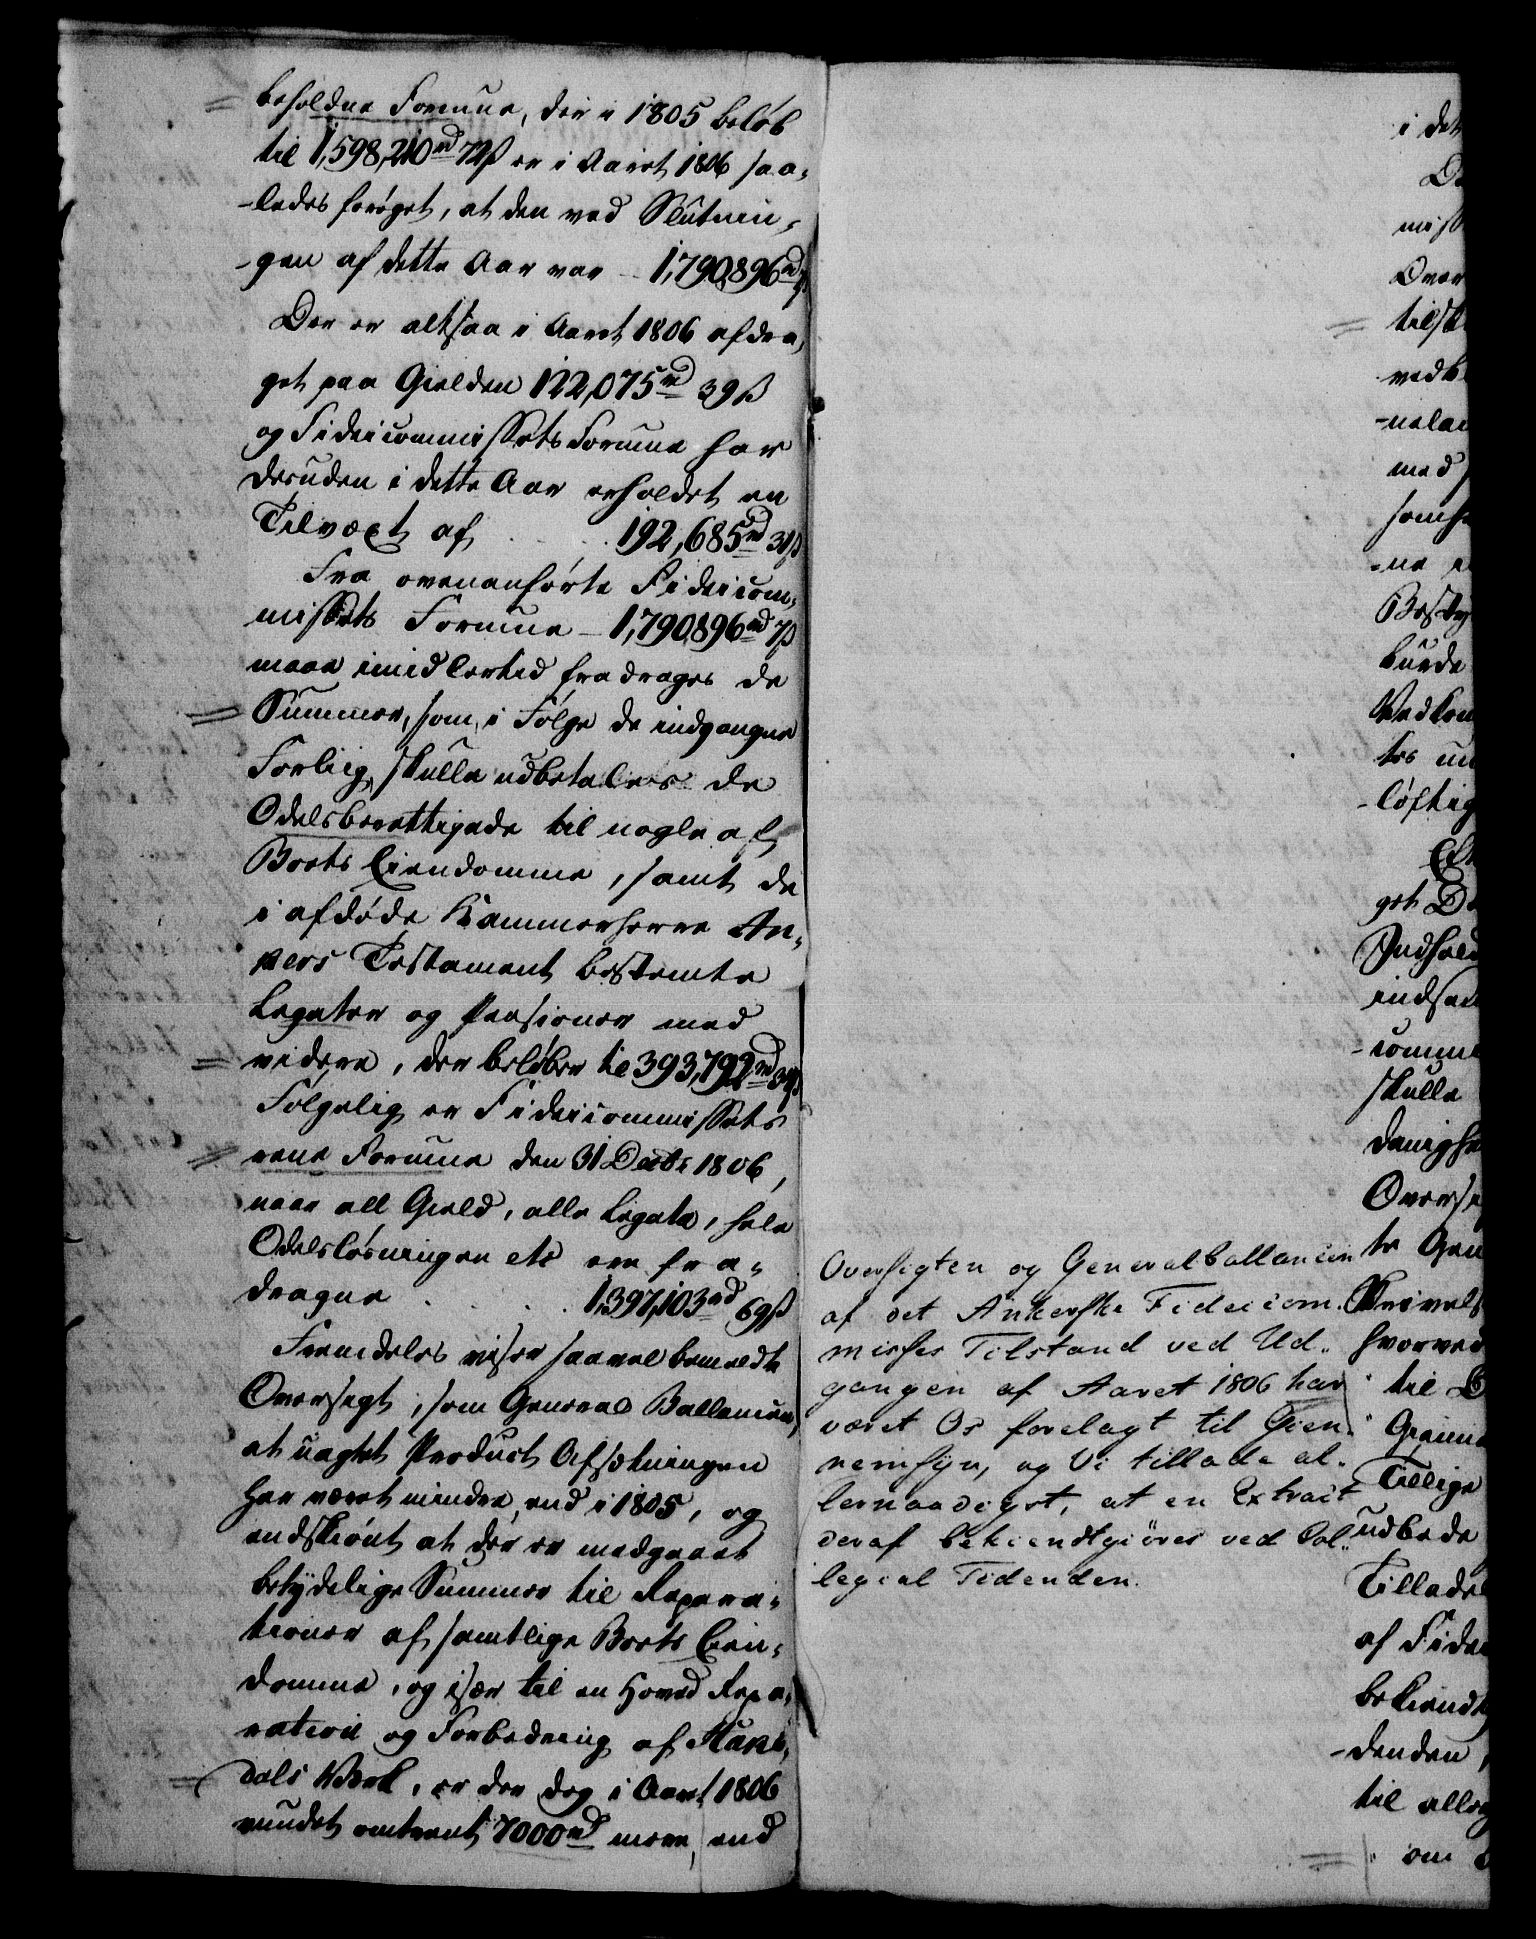 beholdne Formue, der i 1805 beløb
til 1,598,210 rd 72 ß er i Aaret 1806 saa-
-ledes forøget, at den ved Slutnin-
-gen af dette Aar var – 1,790,896 rd 7 ß
Der er altsaa i Aaret 1806 afdra-
get paa Gielden 122,075 rd 39 ß
og Fideicommissets Formue har
desuden i dette Aar erholdet en
Tilvæxt af . . . . 192,685 rd 31 ß
Fra ovenanførte Fideicom-
missets Formue – 1,790,896 rd 7 ß
maae imidlertid fradrages de
Summer, som, i Følge de indgangne
Forlig, skulle udbetales de
Odelsberettigede til nogle af
Boets Eiendomme, samt de
i afdøde Kammerherre An-
kers Testament bestemte
Legater og Pensioner med
videre, der beløber til 393,792 rd 34 ß
Følgelig er Fideicommissets
rene Formue den 31 Decbr 1806,
naar all Gield, alle Legater, hele
Odelsløsningen etc ere fra-
dragne . . . . 1,397,103 rd 69 ß
Fremdeles viser saavel bemeldte
Oversigt, som General Ballancen,
at uagtet Product Afsætningen
har været mindre, end i 1805, og
endskiønt at der er medgaaet
betydelige Summer til Repara-
tioner af samtlige Boets Eien-
domme, og især til en Hoved Repa-
ration og Forbedring af Hake-
dals Værk, er der dog i Aaret 1806
vundet omtrent 7000 rd mere, end
Oversigten og Generalballancen
af det Ankerske Fideicom-
misses Tilstand ved Ud-
gangen af Aaret 1806 har
været Os forelagt til Gien-
nemsyn, og Vi tillade al-
lernaadigst, at en Extract
deraf bekiendtgiøres ved Col-
legial Tidenden.
i det
Over
med
burde
løftig
skulle
til
Tillige
udbede
af
-denden
om